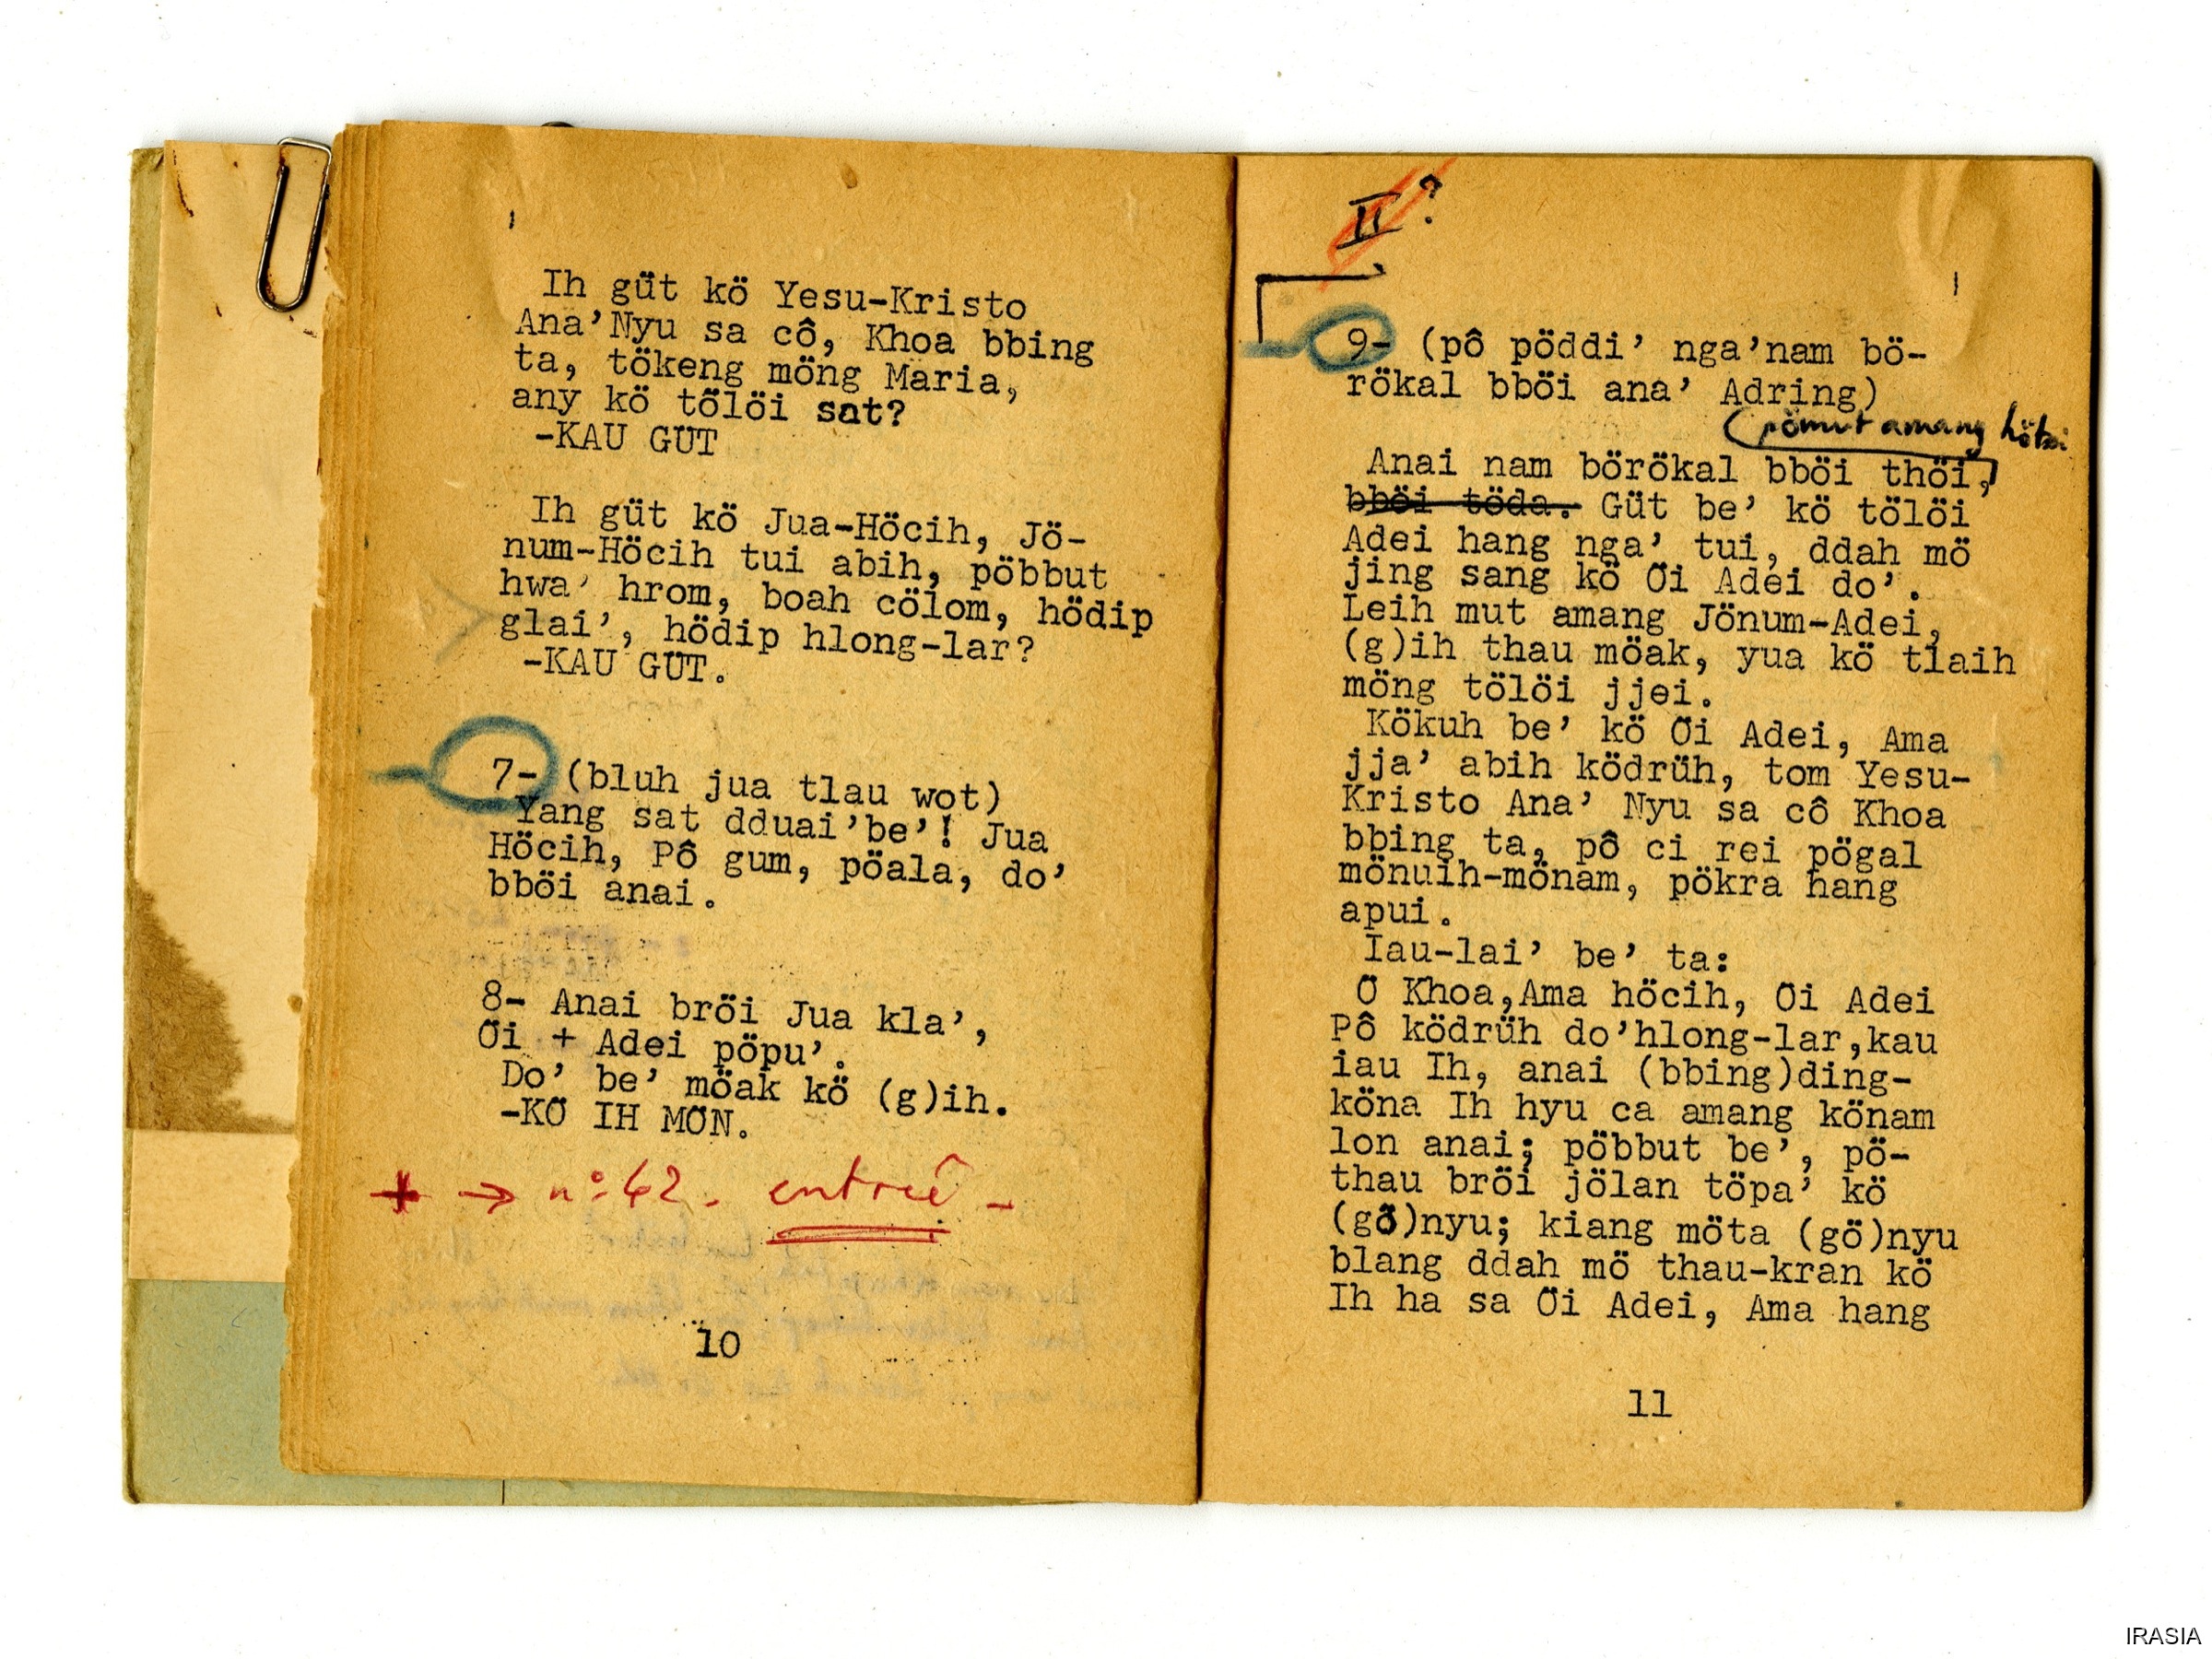 Ih güt kö Yesu-Kristo
Ana’Nyu sa cô, Khoa bbing
ta, tökeng möng Maria,
any kö tölöi sat?
-KAU GÜT
Ih güt kö Jua-Höcih, Jö-
num-Höcih tui abih, pöbbut
hwa’ hrom, boah cölom, hödip
glai’, hödip hlong-lar?
-KAU GÜT.
7- (bluh jua tlau wot)
Yang sat dduai’be’! Jua
Höcih, Pô gum, pöala, do’
bböi anai.
8- Anai bröi Jua kla’,
Öi + Adei pöpu’.
Do’ be’ möak kö (g)ih.
-KÖ IH MÖN.
+ → n°62. entrée -
10
II ?
9- (pô pöddi’ nga’nam bö-
rökal bböi ana’ Adring)
(pömut amang
Anai nam börökal bböi thöi,
bböi töda. Güt be’ kö tölöi
Adei hang nga’ tui, ddah mö
jing sang kö Öi Adei do’.
Leih mut amang Jönum-Adei,
(g)ih thau möak, yua kö tlaih
möng tölöi jjei.
Kökuh be’ kö Öi Adei, Ama
jja’ abih ködrüh, tom Yesu-
Kristo Ana’ Nyu sa cô Khoa
bbing ta, pô ci rei pögal
mönuih-mönam, pökra hang
apui.
Iau-lai’ be’ ta:
Ö Khoa,Ama höcih, Öi Adei
Pô ködrüh do’hlong-lar,kau
iau Ih, anai (bbing)ding-
köna Ih hyu ca amang könam
lon anai; pöbbut be’, pö-
thau bröi jölan töpa’ kö
(gö)nyu; kiang möta (gö)nyu
blang ddah mö thau-kran kö
Ih ha sa Öi Adei, Ama hang
11
IRASIA